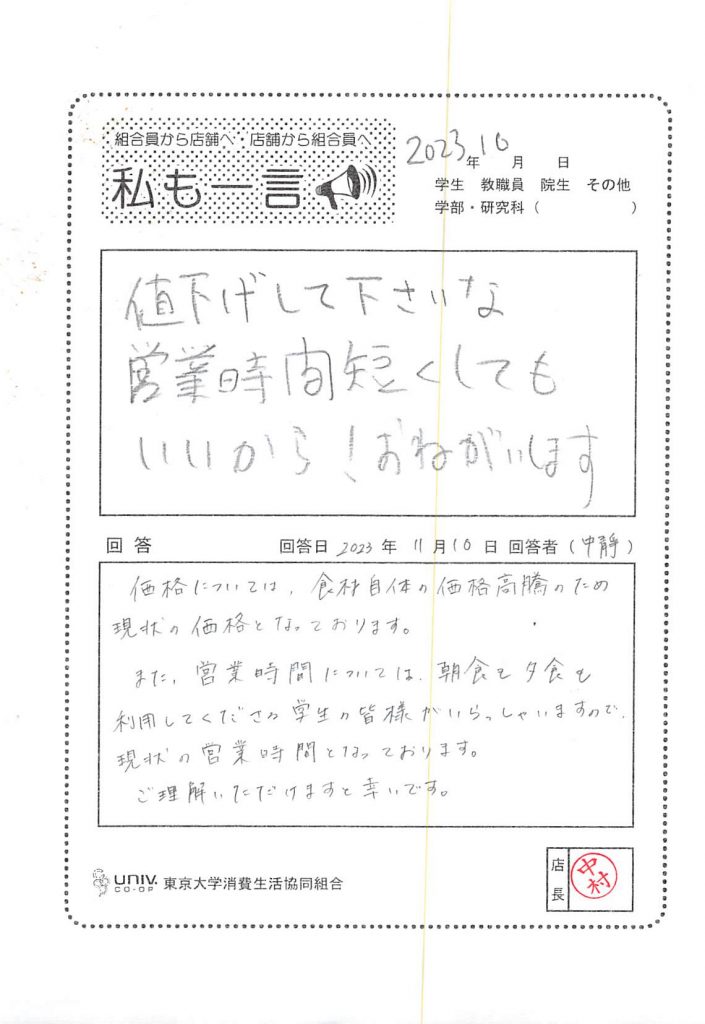 組合員から店舗へ・店舗から組合員へ
私も一言
2023.10 年 月 日
学生 教職員 院生 その他
学部・研究科（ ）
値下げして下さいな
営業時間短くしても
いいから！おねがいします
回答 回答日 2023 年 11 月 10 日 回答者（中静）
価格については、食材自体の価格高騰のため
現状の価格となっております。
また、営業時間については、朝食も夕食も
利用してくださる学生の皆様がいらっしゃいますので、
現状の営業時間となっております。
ご理解いただけますと幸いです。
UNIV. CO-OP 東京大学消費生活協同組合
店長 中村